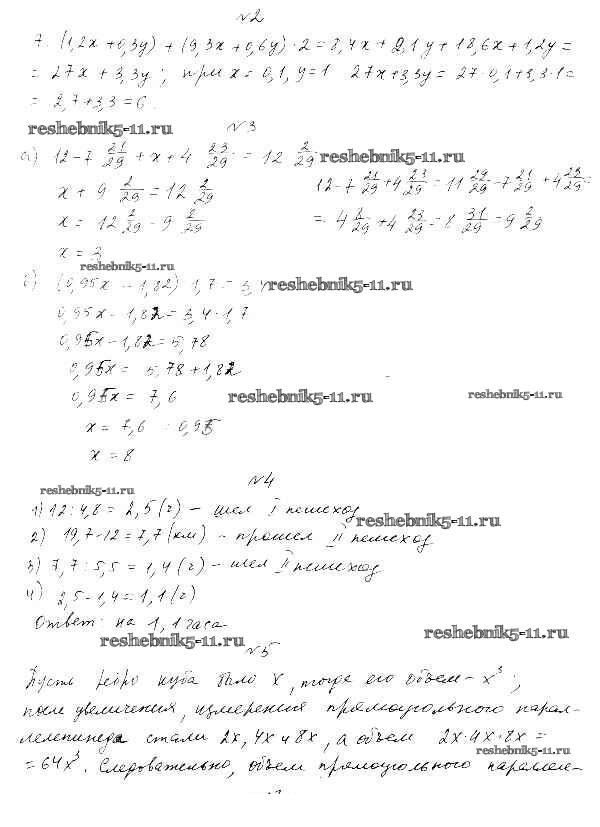 №2
7. (1,2x + 0,3y) + (9,3x + 0,6y) · 2 = 8,4x + 2,1y + 18,6x + 1,2y =
= 27x + 3,3y ; при x = 0,1, y = 1 27x + 3,3y = 27 · 0,1 + 3,3 · 1 =
= 2,7 + 3,3 = 6.
reshebnik5-11.ru
№3
а) 12 - 7 21/29 + x + 4 23/29 = 12 2/29
reshebnik5-11.ru
12 - 7 21/29 + 4 23/29 = 11 29/29 - 7 21/29 + 4 23/29 =
x + 9 2/29 = 12 2/29
= 4 8/29 + 4 23/29 = 8 31/29 = 9 2/29
x = 12 2/29 - 9 2/29
x = 3
reshebnik5-11.ru
б) (0,95x - 1,82) : 1,7 = 3,4
reshebnik5-11.ru
0,95x - 1,82 = 3,4 · 1,7
0,95x - 1,82 = 5,78
0,95x = 5,78 + 1,82
0,95x = 7,6
reshebnik5-11.ru
reshebnik5-11.ru
x = 7,6 : 0,95
x = 8
№4
reshebnik5-11.ru
1) 12 : 4,8 = 2,5 (ч) - шел I пешеход
reshebnik5-11.ru
2) 19,7 - 12 = 7,7 (км) - прошел II пешеход
3) 7,7 : 5,5 = 1,4 (ч) - шел II пешеход
4) 2,5 - 1,4 = 1,1 (ч)
Ответ: на 1,1 часа
reshebnik5-11.ru
reshebnik5-11.ru
№5
Пусть ребро куба было x, тогда его объем - x³ ;
после увеличения, измерения прямоугольного парал-
лелепипеда стали 2x, 4x и 8x, а объем 2x · 4x · 8x =
reshebnik5-11.ru
= 64x³. Следовательно, объем прямоугольного параллеле-